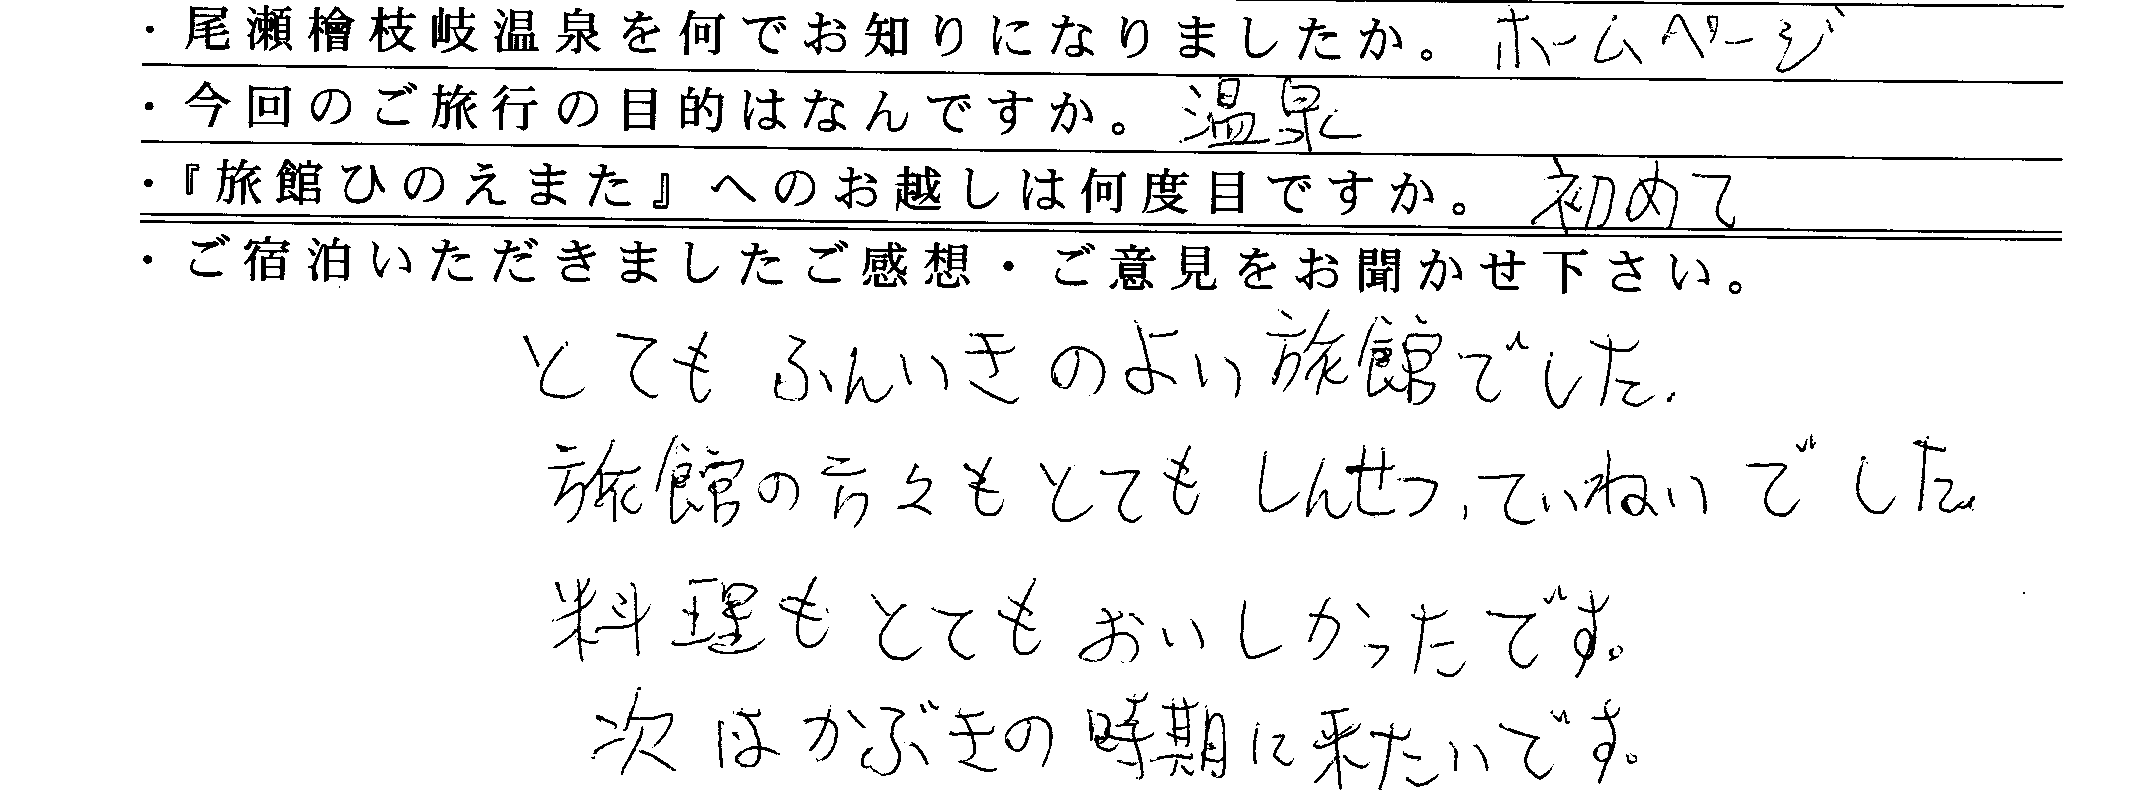 ・尾瀬檜枝岐温泉を何でお知りになりましたか。ホームページ
・今回のご旅行の目的はなんですか。温泉
・『旅館ひのえまた』へのお越しは何度目ですか。初めて
・ご宿泊いただきましたご感想・ご意見をお聞かせ下さい。
とてもふんいきのよい旅館でした.
旅館の方々もとてもしんせつ、ていねいでした。
料理もとてもおいしかったです。
次はかぶきの時期に来たいです。